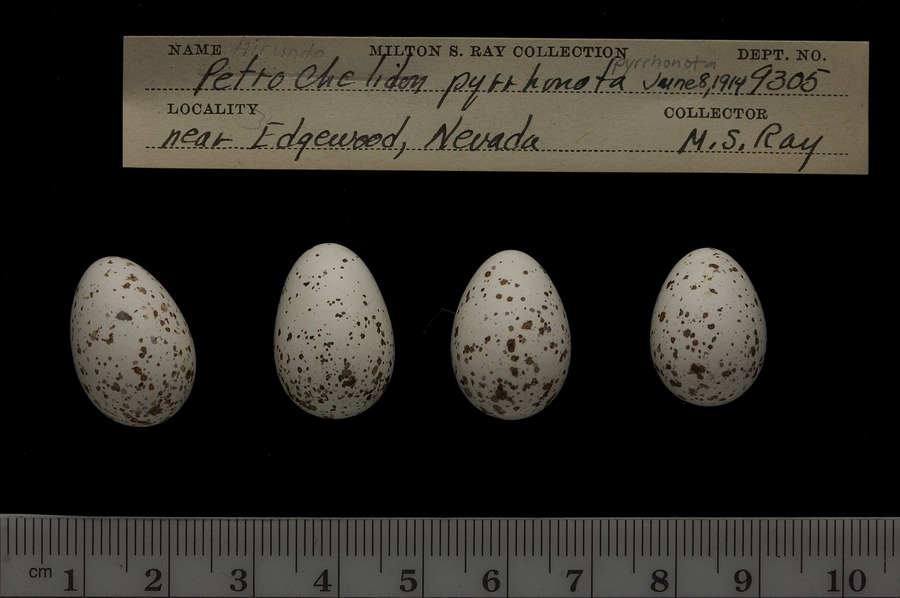 NAME Hirundo MILTON S. RAY COLLECTION pyrrhonota DEPT. NO.
Petrochelidon pyrrhonota June 8, 1914 9305
LOCALITY COLLECTOR
near Edgewood, Nevada M.S. Ray
cm 1 2 3 4 5 6 7 8 9 10